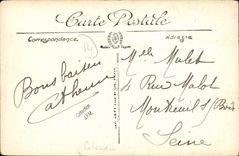 Carte Postale
Correspondance
Adresse
Bons baisers
Catherine
Mlle Mulet
4 Rue Malot
Montreuil s/ Bois
Seine